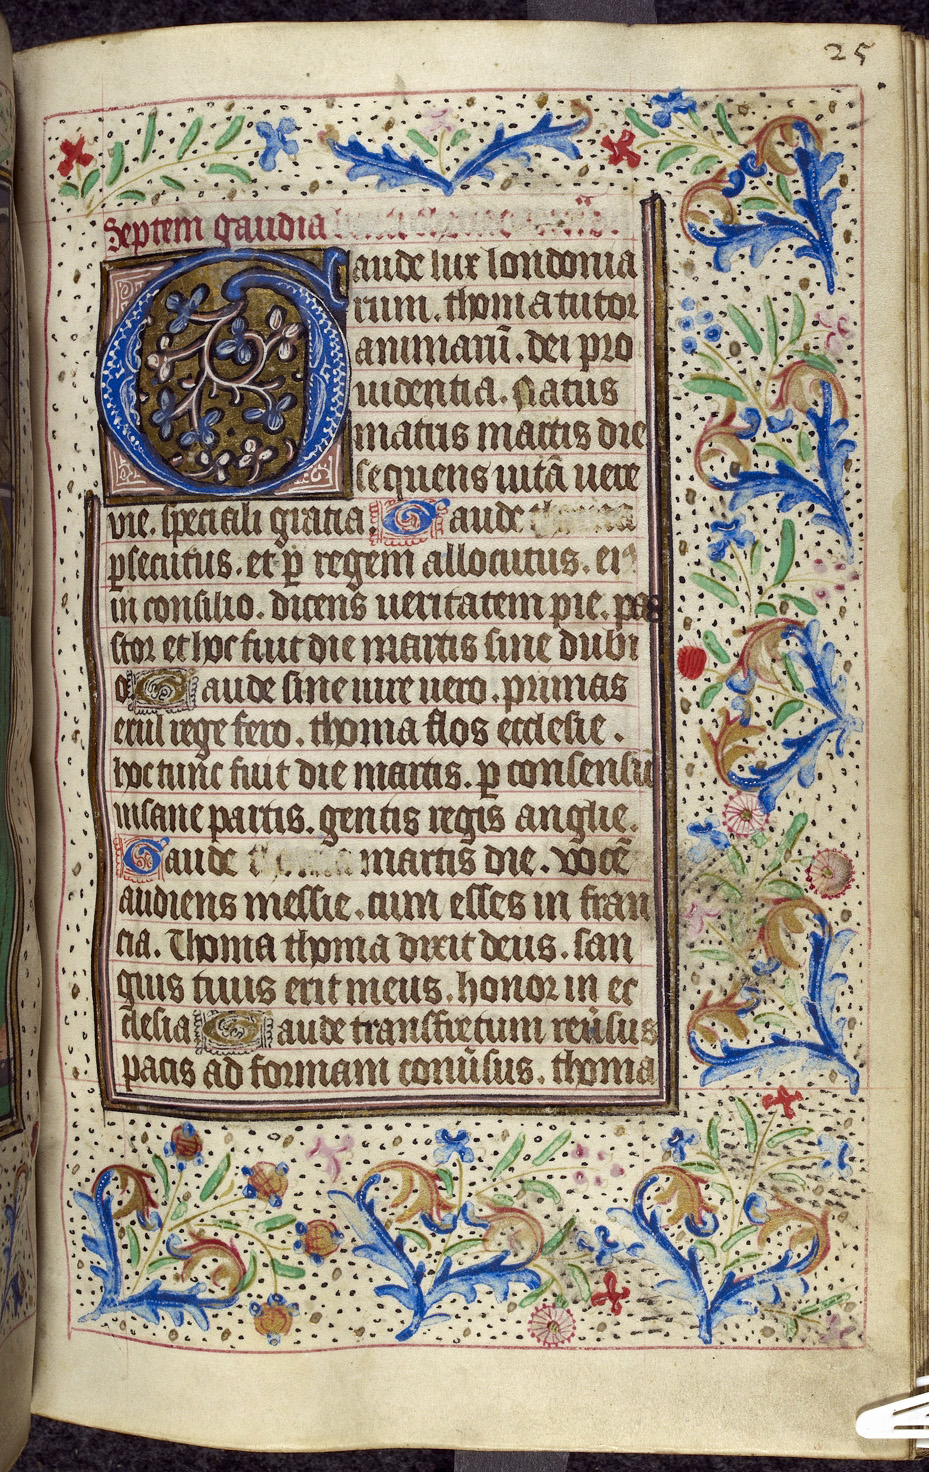 25
Septem gaudia
Gaude lux londonia
rum. thoma tutor
animarū. dei pro
uidentia. Natus
matris martis die
sequens uitā uere
vie. speciali gratia Gaude
ꝑsecutus. et ꝑ regem allocutus. eiꝰ
in consilio. dicens ueritatem pie. pas
stor et hoc fuit die martis sine dubi
o Gaude sine iure uero. primas
exul rege fero. thoma flos ecclesie.
hoc tunc fuit die martis. ꝑ consensū
insane partis. gentis regis anglie.
Gaude martis die. vocē
audiens messie. cum esses in fran
cia. Thoma thoma dixit deus. san
guis tuus erit meus. honor in ec
clesia Gaude transfretum reūsus
pacis ad formam conūsus. thoma